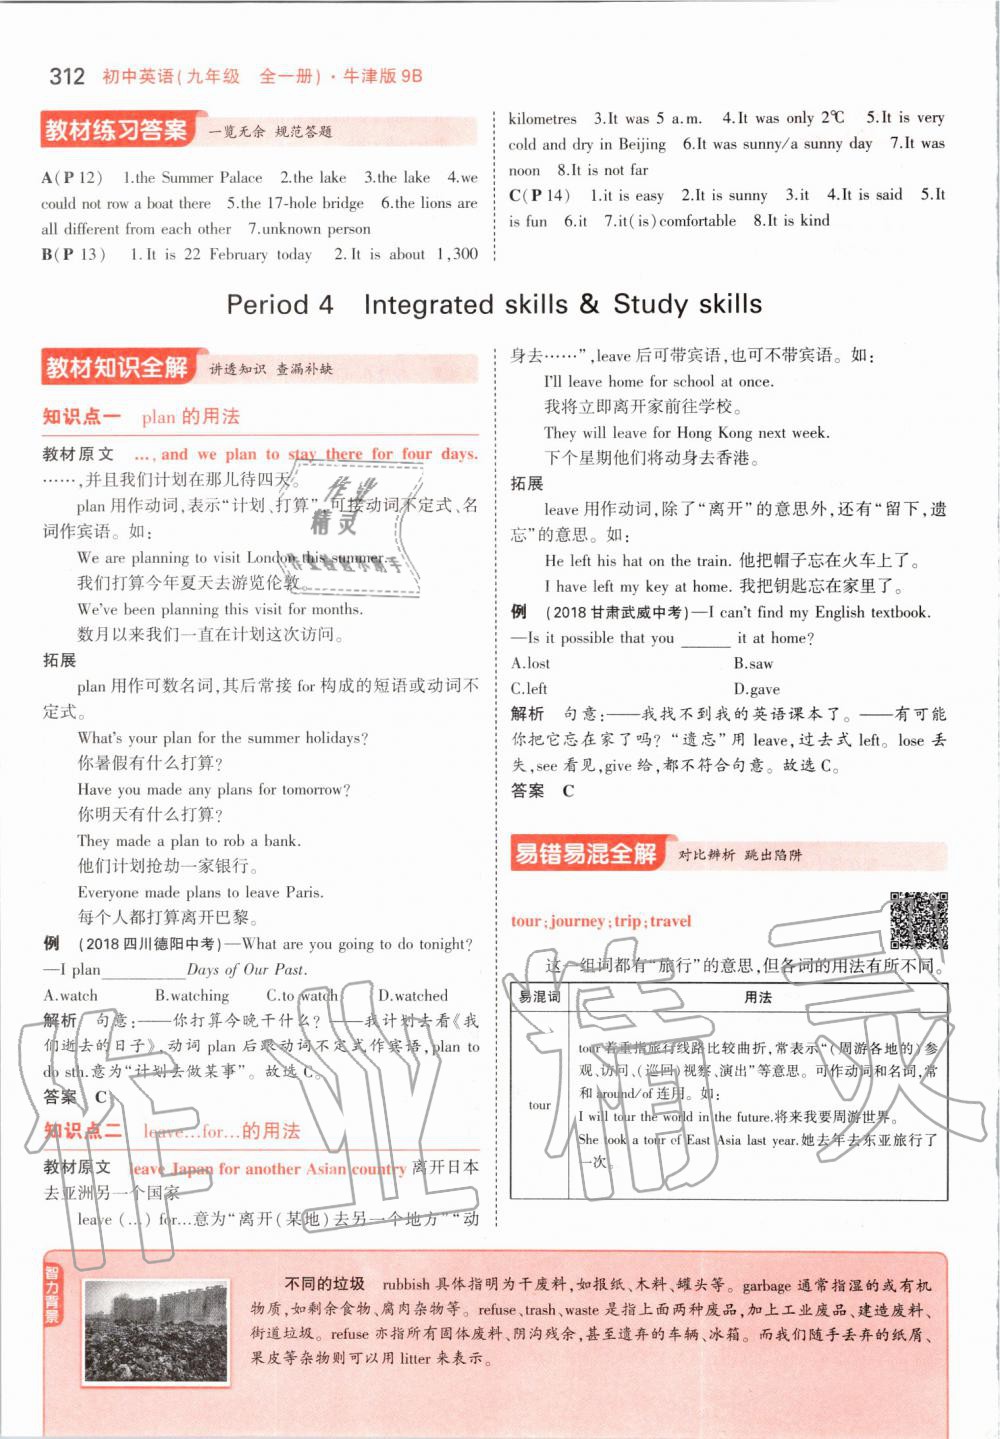 312 初中英语(九年级 全一册)·牛津版 9B
教材练习答案 一览无余 规范答题
A(P 12) 1.the Summer Palace 2.the lake 3.the lake 4.we
could not row a boat there 5.the 17-hole bridge 6.the lions are
all different from each other 7.unknown person
B(P 13) 1.It is 22 February today 2.It is about 1,300
kilometres 3.It was 5 a.m. 4.It was only 2℃ 5.It is very
cold and dry in Beijing 6.It was sunny/a sunny day 7.It was
noon 8.It is not far
C(P 14) 1.it is easy 2.It is sunny 3.it 4.It is said 5.It
is fun 6.it 7.it(is)comfortable 8.It is kind
Period 4 Integrated skills & Study skills
教材知识全解 讲透知识 查漏补缺
知识点一 plan 的用法
教材原文 …, and we plan to stay there for four days.
……,并且我们计划在那儿待四天。
plan 用作动词,表示“计划、打算”,可接动词不定式、名
词作宾语。如:
We are planning to visit London this summer.
我们打算今年夏天去游览伦敦。
We've been planning this visit for months.
数月以来我们一直在计划这次访问。
拓展
plan 用作可数名词,其后常接 for 构成的短语或动词不
定式。
What's your plan for the summer holidays?
你暑假有什么打算?
Have you made any plans for tomorrow?
你明天有什么打算?
They made a plan to rob a bank.
他们计划抢劫一家银行。
Everyone made plans to leave Paris.
每个人都打算离开巴黎。
例 (2018 四川德阳中考)—What are you going to do tonight?
—I plan__________Days of Our Past.
A.watch B.watching C.to watch D.watched
解析 句意:——你打算今晚干什么? ——我计划去看《我
们逝去的日子》,动词 plan 后跟动词不定式作宾语,plan to
do sth.意为“计划去做某事”。故选 C。
答案 C
知识点二 leave…for…的用法
教材原文 leave Japan for another Asian country 离开日本
去亚洲另一个国家
leave (…) for…意为“离开(某地)去另一个地方”“动
身去……”,leave 后可带宾语,也可不带宾语。如:
I'll leave home for school at once.
我将立即离开家前往学校。
They will leave for Hong Kong next week.
下个星期他们将动身去香港。
拓展
leave 用作动词,除了“离开”的意思外,还有“留下,遗
忘”的意思。如:
He left his hat on the train. 他把帽子忘在火车上了。
I have left my key at home. 我把钥匙忘在家里了。
例 (2018 甘肃武威中考)—I can't find my English textbook.
—Is it possible that you ______ it at home?
A.lost B.saw
C.left D.gave
解析 句意:——我找不到我的英语课本了。——有可能
你把它忘在家了吗? “遗忘”用 leave,过去式 left。lose 丢
失,see 看见,give 给,都不符合句意。故选 C。
答案 C
易错易混全解 对比辨析 跳出陷阱
tour;journey;trip;travel
这一组词都有“旅行”的意思,但各词的用法有所不同。
易混词 用法
tour
tour 着重指旅行线路比较曲折,常表示“(周游各地的)参
观、访问、(巡回)视察、演出”等意思。可作动词和名词,常
和 around/of 连用。如:
I will tour the world in the future.将来我要周游世界。
She took a tour of East Asia last year.她去年去东亚旅行了
一次。
智力背景
不同的垃圾 rubbish 具体指明为干废料,如报纸、木料、罐头等。garbage 通常指湿的或有机
物质,如剩余食物、腐肉杂物等。refuse、trash、waste 是指上面两种废品,加上工业废品、建造废料、
街道垃圾。refuse 亦指所有固体废料、阴沟残余,甚至遗弃的车辆、冰箱。而我们随手丢弃的纸屑、
果皮等杂物则可以用 litter 来表示。
作业精灵
作业
精灵
作业检查小帮手